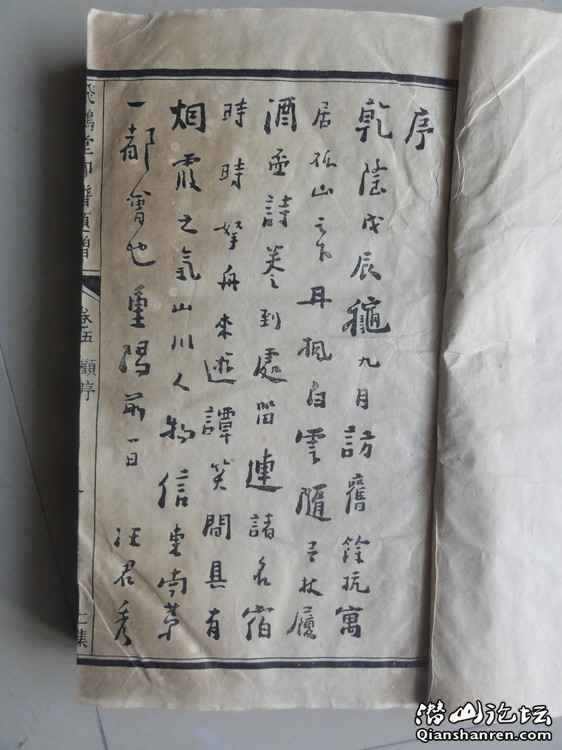 序
乾隆戊辰龝九月訪舊餘杭寓
居孤山之下丹楓白雲隨吾杖履
酒盃詩卷到處留連諸名宿
時時拏舟來遊譚笑間具有
烟霞之氣山川人物信東南第
一都會也重陽前一日 汪君秀
飛鴻堂印譜
卷五 序
集
潜山论坛
Qianshanren.com